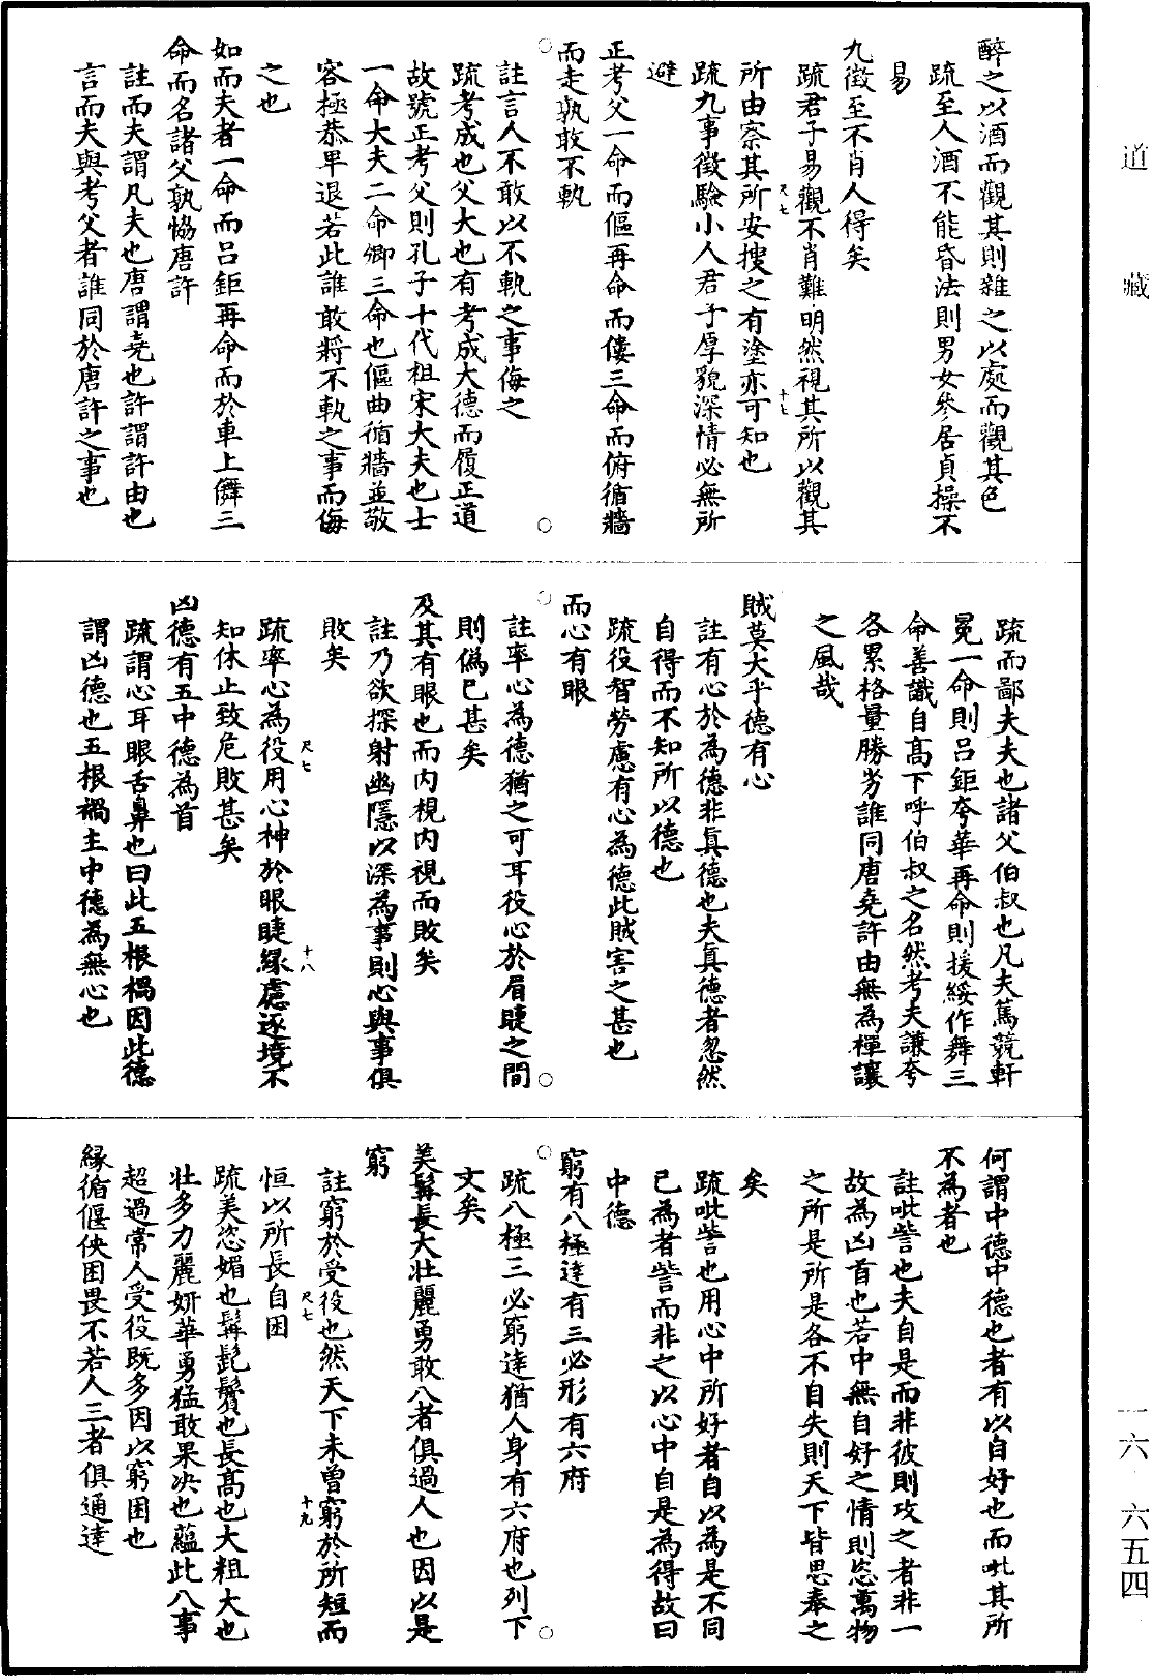 醉之以酒而觀其則雜之以處而觀其色
疏至人酒不能昏法則男女參居貞操不
易
九徵至不肖人得矣
疏君子易觀不肖難明然視其所以觀其
所由察其所安搜之有塗亦可知也
疏九事徵驗小人君子厚貌深情必無所
避
正考父一命而傴再命而僂三命而俯循牆
而走孰敢不軌
註言人不敢以不軌之事侮之
疏考成也父大也有考成大德而履正道
故號正考父則孔子十代祖宋大夫也士
一命大夫二命卿三命也傴曲循牆並敬
容極恭卑退若此誰敢將不軌之事而侮
之也
如而夫者一命而呂鉅再命而於車上儛三
命而名諸父孰恊唐許
註而夫謂凡夫也唐謂堯也許謂許由也
言而夫與考父者誰同於唐許之事也
尺七
十七
疏而鄙夫夫也諸父伯叔也凡夫篤競軒
冕一命則呂鉅夸華再命則援綏作舞三
命善識自高下呼伯叔之名然考夫謙夸
各累格量勝劣誰同唐堯許由無為禪讓
之風哉
賊莫大乎德有心
註有心於為德非真德也夫真德者忽然
自得而不知所以德也
疏役智勞慮有心為德此賊害之甚也
而心有眼
註率心為德猶之可耳役心於眉睫之間
則偽已甚矣
及其有眼也而內視內視而敗矣
註乃欲探射幽隱以深為事則心與事俱
敗矣
疏率心為役用心神於眼睫緣慮逐境不
知休止致危敗甚矣
凶德有五中德為首
疏謂心耳眼舌鼻也曰此五根禍因此德
謂凶德也五根禍主中德為無心也
尺七
十八
何謂中德中德也者有以自好也而吡其所
不為者也
註吡訾也夫自是而非彼則攻之者非一
故為凶首也若中無自好之情則恣萬物
之所是所是各不自失則天下皆思奉之
矣
疏吡訾也用心中所好者自以為是不同
己為者訾而非之以心中自是為得故曰
中德
窮有八極達有三必形有六府
疏八極三必窮達猶人身有六府也列下
文矣
美髯長大壯麗勇敢八者俱過人也因以是
窮
註窮於受役也然天下未曾窮於所短而
恒以所長自困
疏美恣媚也髯髭鬢也長高也大粗大也
壯多力麗妍華勇猛敢果決也蘊此八事
超過常人受役既多因以窮困也
緣循偃佒困畏不若人三者俱通達
尺七
十九
道藏
一六 六五四